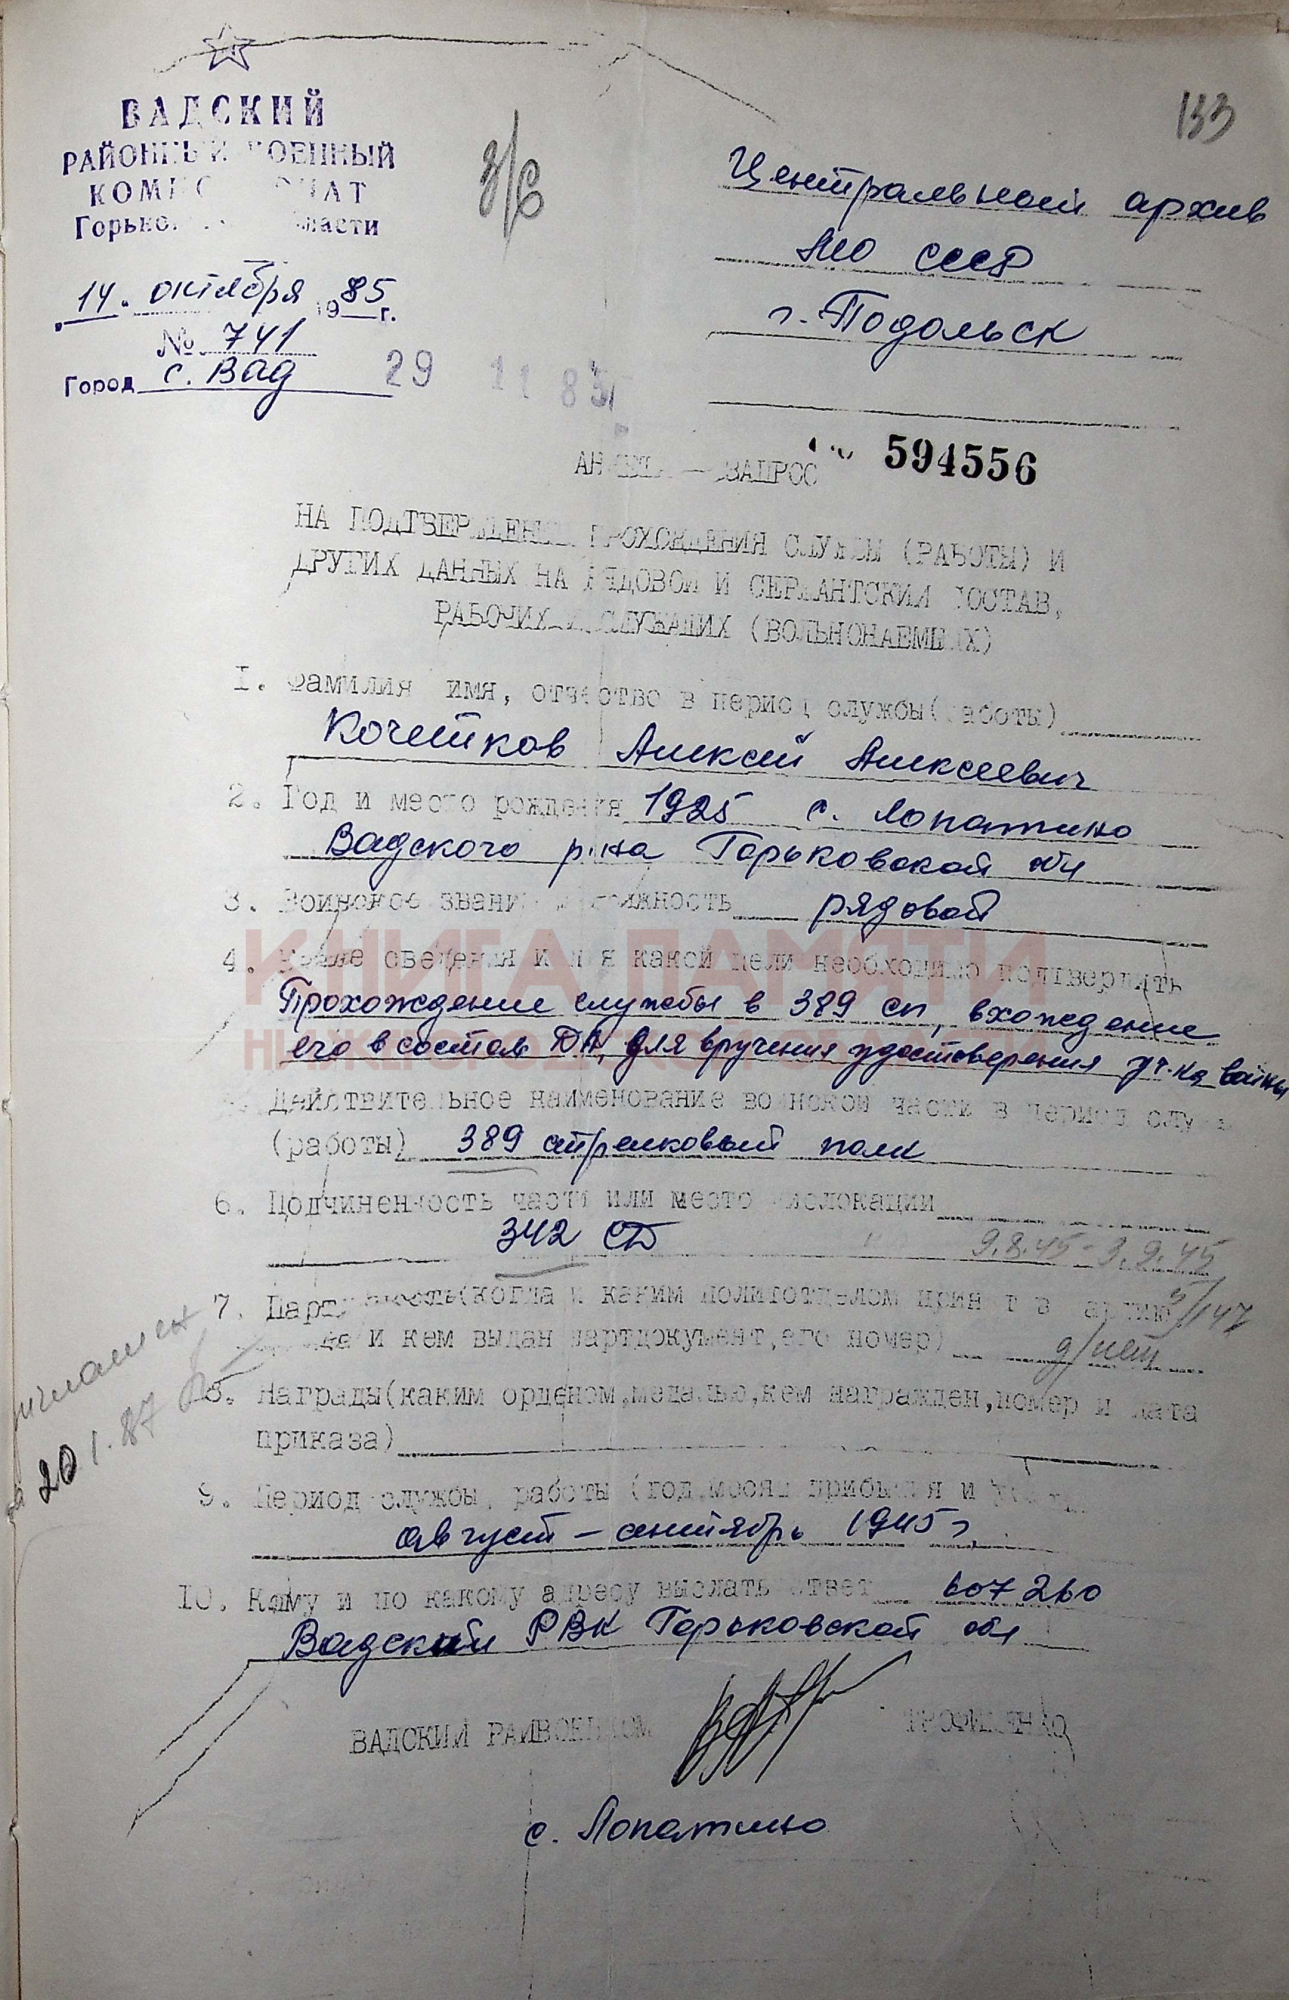 133
ВАДСКИЙ
РАЙОННЫЙ ВОЕННЫЙ
КОМИССАРИАТ
Горьковской области
14. октября 1985 г.
№ 741
Город с. Вад
29 11 85
з/с
Центральный архив
МО СССР
г. Подольск
№ 594556
АНКЕТА — ЗАПРОС
НА ПОДТВЕРЖДЕНИЕ ПРОХОЖДЕНИЯ СЛУЖБЫ (РАБОТЫ) И
ДРУГИХ ДАННЫХ НА РЯДОВОЙ И СЕРЖАНТСКИЙ СОСТАВ,
РАБОЧИХ И СЛУЖАЩИХ (ВОЛЬНОНАЕМНЫХ)
1. Фамилия имя, отчество в период службы (работы)
Кочетков Алексей Алексеевич
2. Год и место рождения 1925 с. Лопатино
Вадского р-на Горьковской обл
3. Воинское звание и должность рядовой
4. Какие сведения и для какой цели необходимо подтвердить
Прохождение службы в 389 сп, вхождение
его в состав ДА, для вручения удостоверения уч-ка войны
КНИГА ПАМЯТИ
НИЖЕГОРОДСКОЙ ОБЛАСТИ
5. Действительное наименование воинской части в период службы
(работы) 389 стрелковый полк
6. Подчиненность части или место дислокации
342 СД
9.8.45 - 3.9.45
7. Партийность (когда и каким политотделом принят в партию
5/147
когда и кем выдан партдокумент, его номер)
д/нет
20 1.87
8. Награды (каким орденом, медалью, кем награжден, номер и дата
приказа)
9. Период службы, работы (год, месяц прибытия и
август - сентябрь 1945 г.
10. Кому и по какому адресу выслать ответ 607260
Вадский РВК Горьковской обл
ВАДСКИЙ РАЙВОЕНКОМ ТРОФИМЕНКО
с. Лопатино